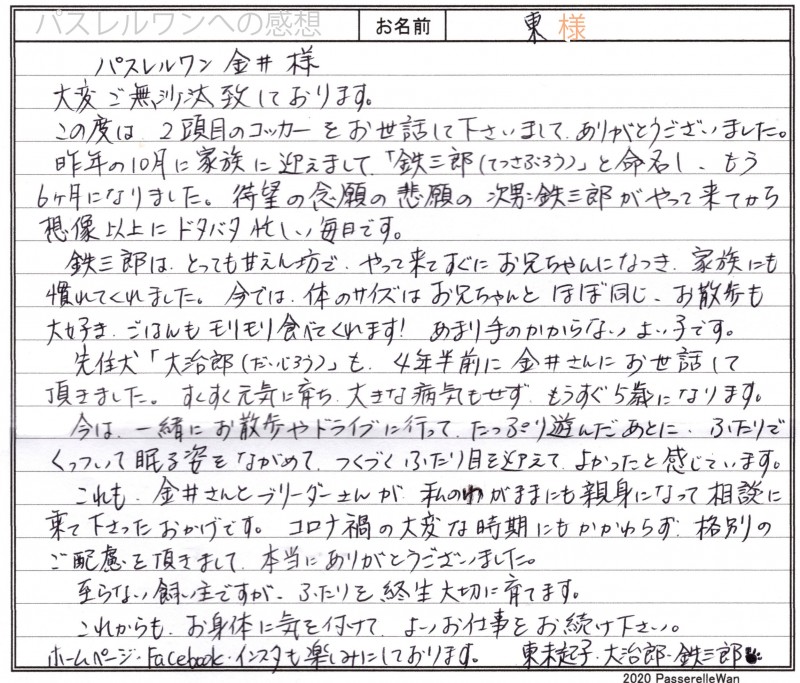 パスレルワンへの感想 お名前 東 様
パスレルワン 金井 様
大変ご無沙汰致しております。
この度は、2頭目のコッカーをお世話して下さいまして、ありがとうございました。
昨年の10月に家族に迎えまして、「鉄三郎(てつさぶろう)」と命名し、もう
6ヶ月になりました。待望の念願の悲願の次男:鉄三郎がやって来てから
想像以上にドタバタ忙しい毎日です。
鉄三郎は、とっても甘えん坊で、やって来てすぐにお兄ちゃんになつき、家族にも
慣れてくれました。今では、体のサイズはお兄ちゃんとほぼ同じ、お散歩も
大好き、ごはんもモリモリ食べてくれます!あまり手のかからないよい子です。
先住犬「大治郎(だいじろう)」も、4年半前に金井さんにお世話して
頂きました。すくすく元気に育ち、大きな病気もせず、もうすぐ5歳になります。
今は、一緒にお散歩やドライブに行って、たっぷり遊んだあとに、ふたりで
くっついて眠る姿をながめて、つくづくふたり目を迎えて、よかったと感じています。
これも、金井さんとブリーダーさんが、私のわがままにも親身になって相談に
来て下さったおかげです。コロナ禍の大変な時期にもかかわらず、格別の
ご配慮を頂きまして、本当にありがとうございました。
至らない飼い主ですが、ふたりを終生大切に育てます。
これからも、お身体に気を付けて、よいお仕事をお続け下さい。
ホームページ・Facebook・インスタも楽しみにしております。 東未起子・大治郎・鉄三郎
2020 PasserelleWan